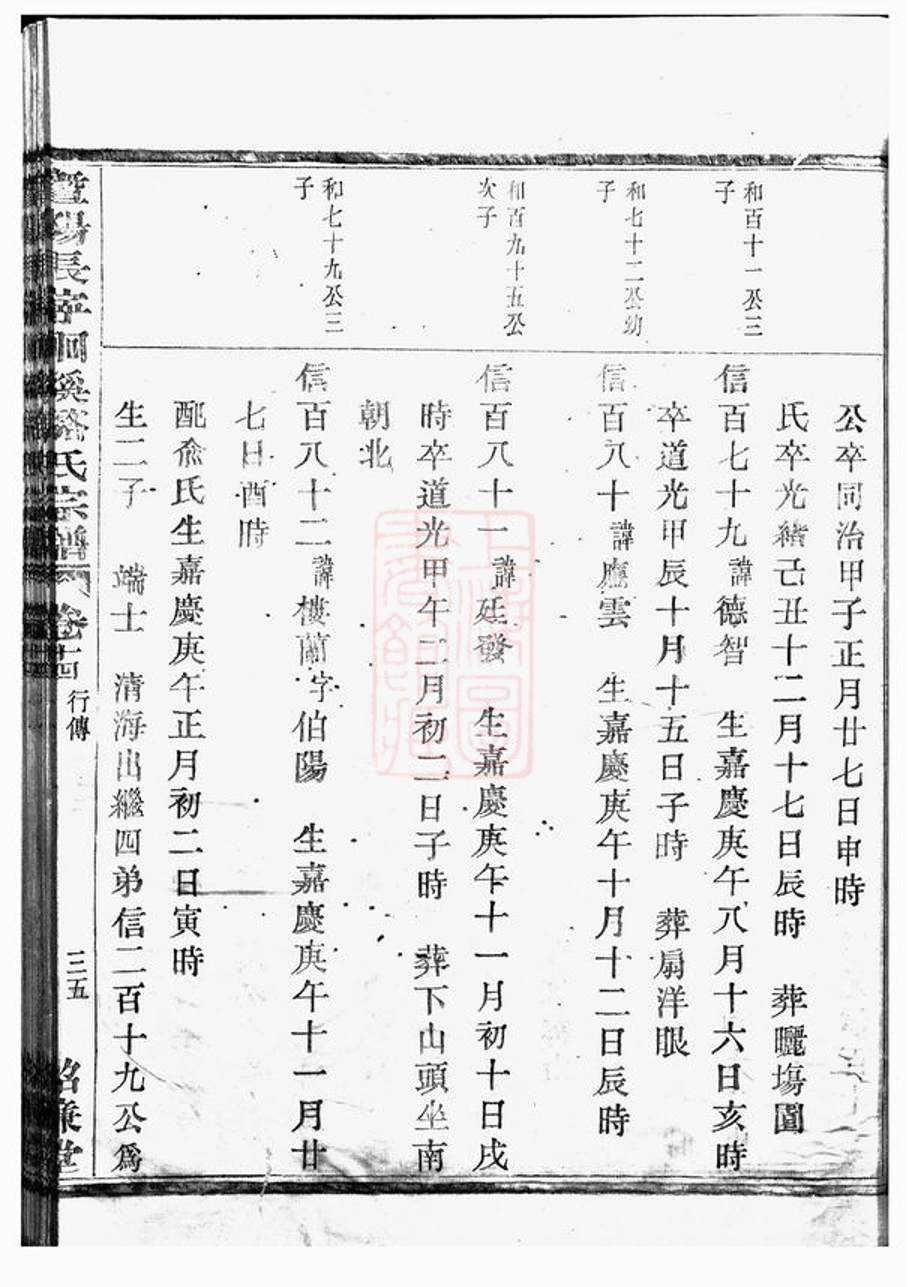 公卒同治甲子正月廿七日申時
氏卒光緒己丑十二月十七日辰時　葬曬塲園
和百十一公三
子
信百七十九諱德智　生嘉慶庚午八月十六日亥時
卒道光甲辰十月十五日子時　葬扇洋眼
和七十二公幼
子
信百八十諱應雲　生嘉慶庚午十月十二日辰時
和百九十五公
次子
信百八十一諱廷發　生嘉慶庚午十一月初十日戌
時卒道光甲午二月初二日子時　葬下山頭坐南
朝北
和七十九公三
子
信百八十二諱樓蘭字伯陽　生嘉慶庚午十一月廿
七日酉時
配俞氏生嘉慶庚午正月初二日寅時
生二子　端士　清海出繼四弟信二百十九公為
暨陽長亭　溪　氏宗譜　卷十四　行傳　三五　堂